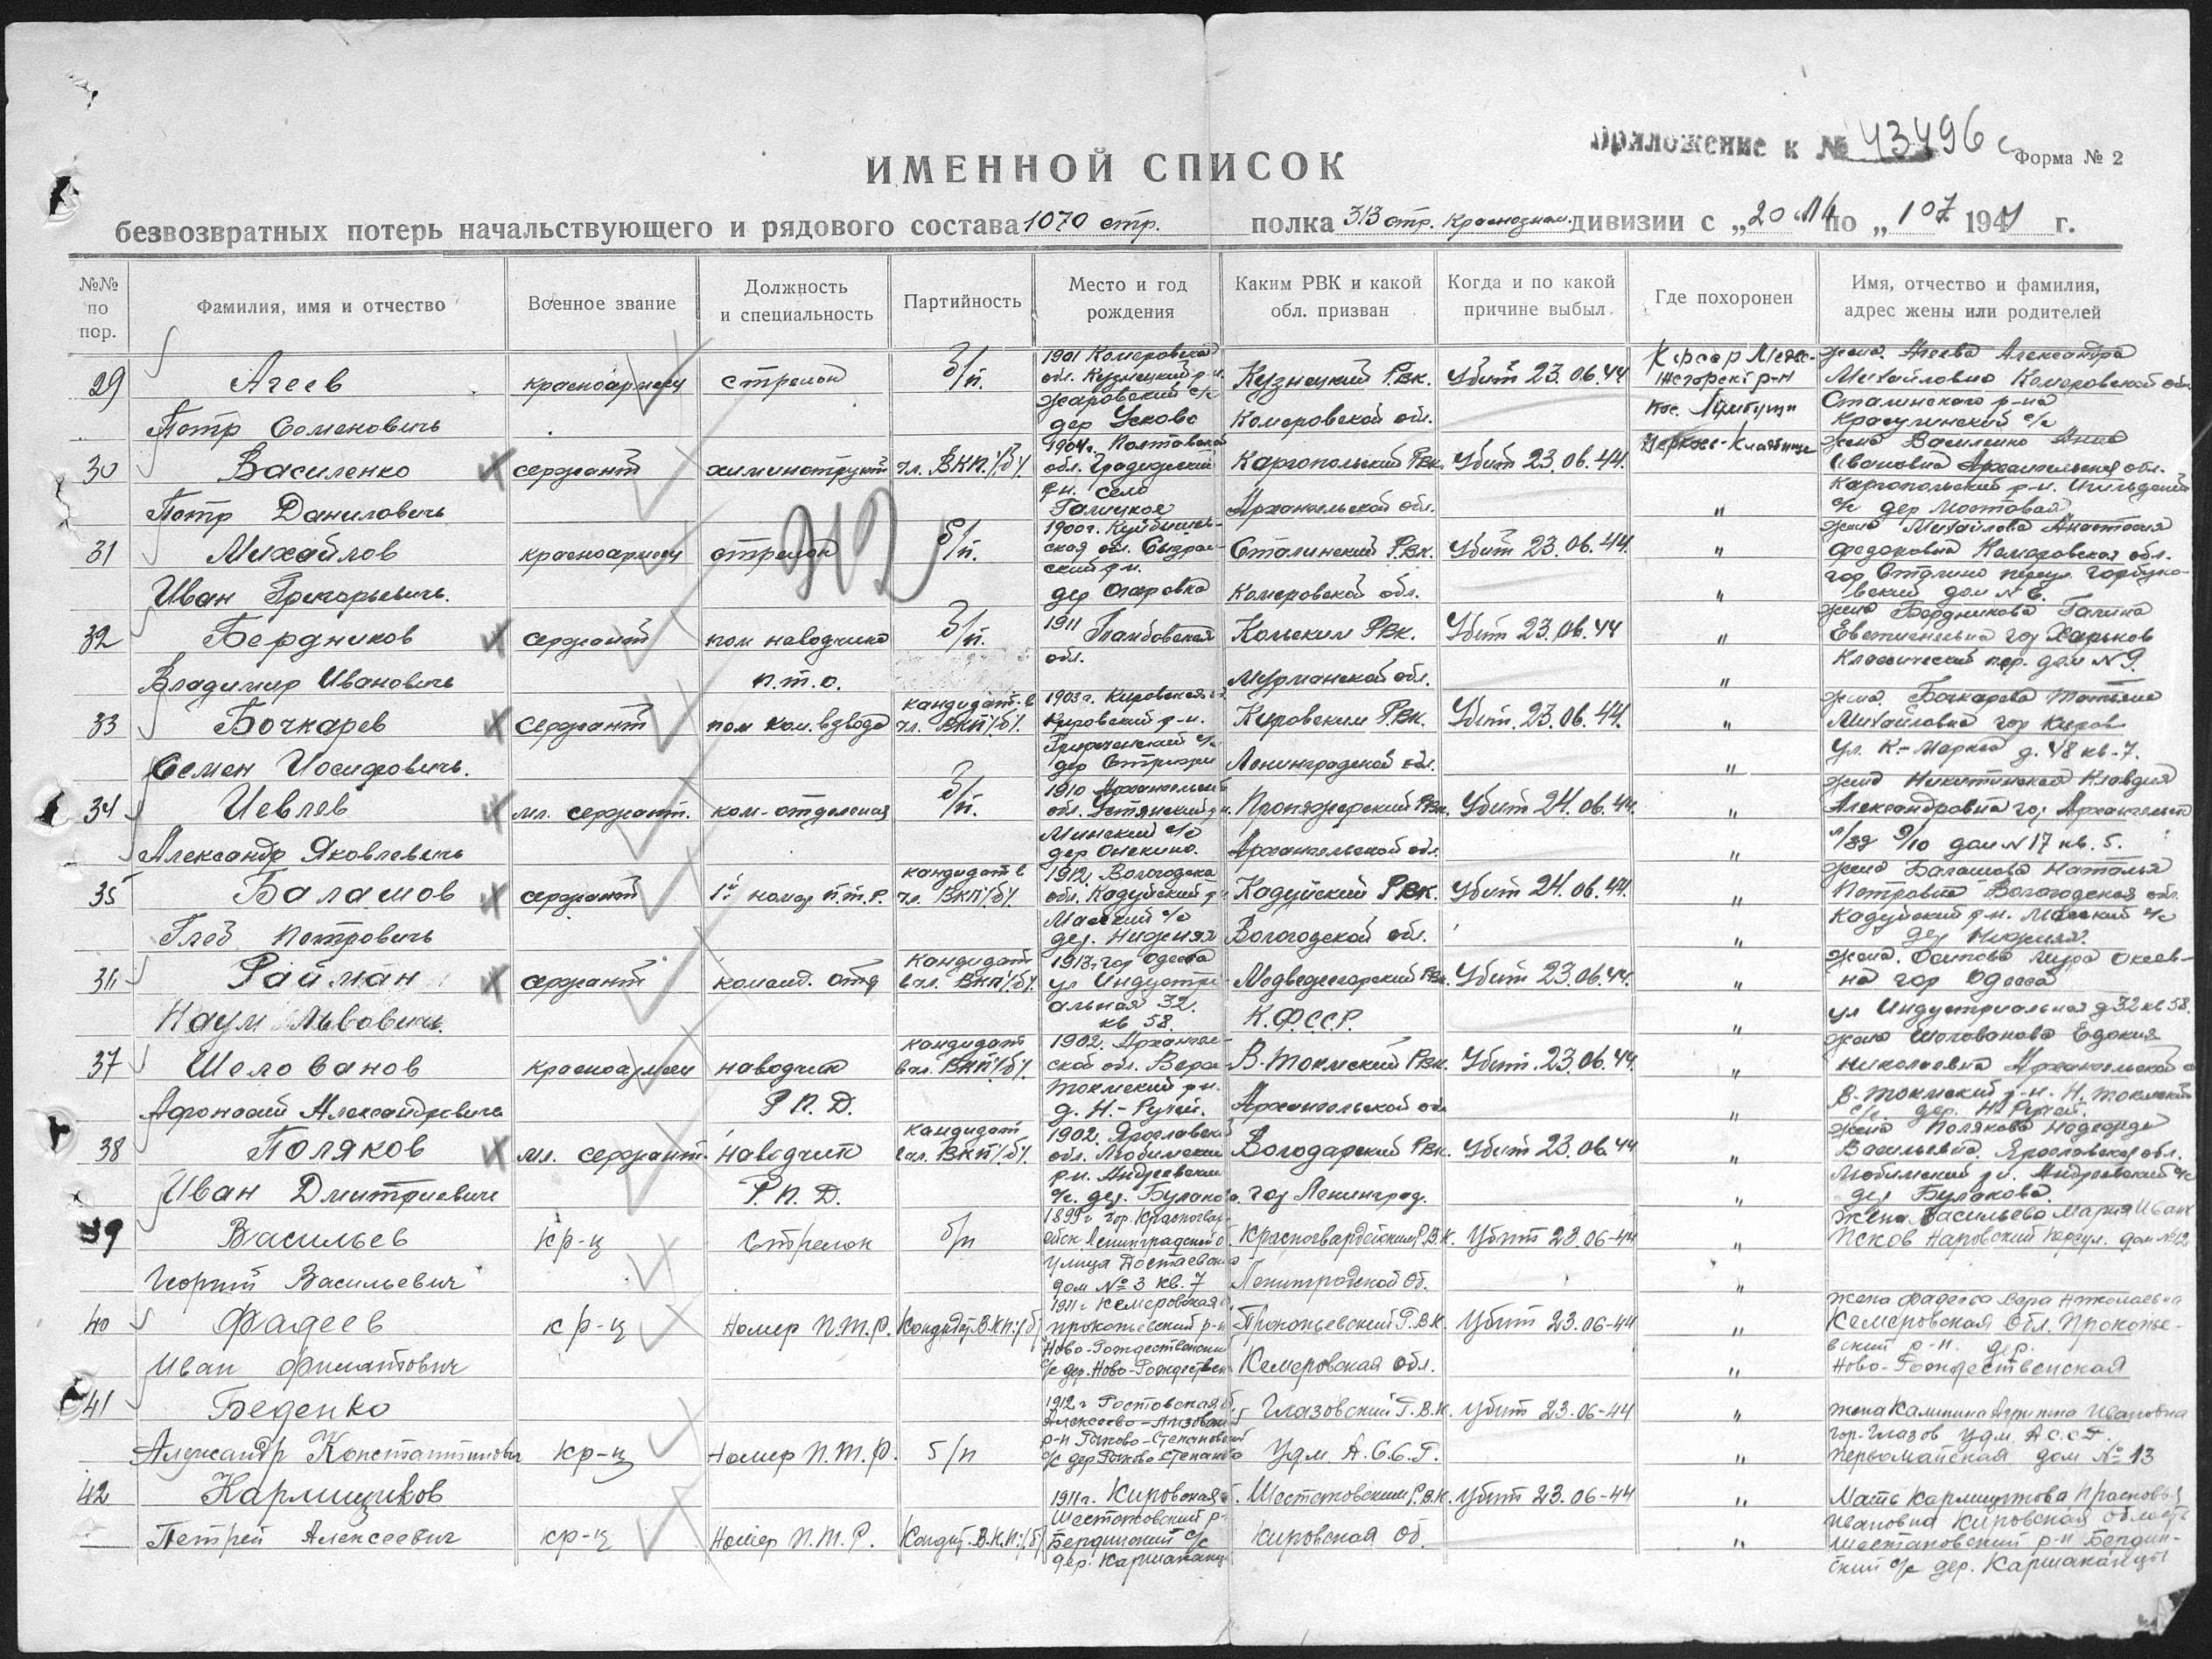 Приложение к № 43496 с
Форма № 2
ИМЕННОЙ СПИСОК
безвозвратных потерь начальствующего и рядового состава 1070 стр. полка 313 стр. Краснознам. дивизии с „20 по „1 07 1944 г.
№№ по пор. Фамилия, имя и отчество Военное звание Должность и специальность Партийность Место и год рождения Каким РВК и какой обл. призван Когда и по какой причине выбыл. Где похоронен Имя, отчество и фамилия, адрес жены или родителей
312
29 Агеев Петр Семенович красноармеец стрелок б/п. 1901 Кемеровская обл. Кузнецкий р-н. Жаровский с/с дер Усково Кузнецкий Рвк. Кемеровской обл. Убит 23.06.44 КфССР р-н пос. жена Агеева Александра Михайловна Кемеровской обл. Сталинского р-на с/с
30 Василенко Петр Данилович сержант химинструкт чл. ВКП/б/. 1904г. Полтавская обл. Градижский р-н. село Галицкое Каргопольский Рвк. Архангельской обл. Убит 23.06.44. " жена Василенко Анна Ивановна Архангельская обл. Каргопольский р-н. с/с дер Мостовая
31 Михайлов Иван Григорьевич. красноармеец стрелок б/п. 1900г. Куйбышевская обл. Сызранский р-н. дер Сталинский Рвк. Кемеровской обл. Убит 23.06.44. " " жена Михайлова Анастасия Федоровна Кемеровская обл. гор Сталино дом № 6.
32 Бердников Владимир Иванович сержант пом наводчика п.т.о. б/п. 1911 Тамбовская обл. Кольским Рвк. Мурманской обл. Убит 23.06.44 " " жена Бердникова Галина Евгеньевна гор Харьков Классический пер. дом № 9.
33 Бочкарев Семен Иосифович. сержант пом ком. взвода кандидат в чл. ВКП/б/. 1903г. Кировская Кировский р-н. с/с дер Кировским Рвк. Ленинградской обл. Убит. 23.06.44. " " жена Бочкарева Татьяна Михайловна гор Киров Ул. К.-Маркса д. 48 кв-7.
34 Иевлев Александр Яковлевич мл. сержант. ком-отделения б/п. 1910 Архангельской обл. Устянский р-н. Минский с/с дер Онекино. Рвк. Архангельской обл. Убит 24.06.44. " " жена Клавдия Александровна гор Архангельск дом № 17 кв. 5.
35 Баламов Глеб Петрович сержант 1й номер п.т.р. кандидат в чл. ВКП/б/. 1912 Вологодская обл. Кадуйский р-н Маский с/с дер. Нижняя Кадуйский Рвк. Вологодской обл. Убит 24.06.44. " " жена Баламова Наталья Петровна Вологодская обл. Кадуйский р-н. Маский с/с дер Нижняя.
36 Райман Наум Львович. сержант команд. отд кандидат в чл. ВКП/б/. 1913г. гор Одесса ул Индустриальная 32. кв 58. Медвежегорский Рвк. К.Ф.С.С.Р. Убит 23.06.44. " " жена. гор Одесса ул Индустриальная д-32 кв 58.
37 Шелованов Афонасий Александрович красноармеец наводчик Р.П.Д. кандидат в чл. ВКП/б/. 1902. Архангельской обл. Верхне-Тоемский р-н. д. Н.-Ручей. В-Тоемский Рвк. Архангельской обл Убит. 23.06.44. " " жена Шелованова Евдокия Николаевна Архангельской В-Тоемский р-н. Н. Тоемский с/с. дер. Н-Ручей.
38 Поляков Иван Дмитриевич мл. сержант. наводчик Р.П.Д. кандидат в чл. ВКП/б/. 1902. Ярославской обл. Любимский р-н. Андреевский с/с. дер. Булаково Володарский Рвк. гор Ленинград. Убит 23.06.44 " " жена Полякова Надежда Васильевна. Ярославская обл. Любимский р-н. Андреевский с/с дер Булаково.
39 Васильев Георгий Васильевич кр-ц Стрелок б/п 1899г гор. Красногвардейск Ленинградской о. улица Достаевского дом № 3 кв. 7 Красногвардейским Р.В.К. Ленинградской Об. Убит 23.06-44 " " Жена Васильева Мария Иван Псков Наровский переул. дом № 12
40 Фадеев Иван Филатович кр-ц Номер П.Т.Р. Кандидат. В.К.П./б/ 1911г Кемеровская Прокопьевский р-н Ново-Рождественский с/с дер. Ново-Рождествен Прокопьевский Р.В.К. Кемеровская Обл. Убит 23.06-44 " " Жена Фадеева Вера Николаевна Кемеровская Обл. Прокопьевский р-н. дер. Ново-Рождественская
41 Беденко Александр Константинович кр-ц Номер П.Т.Р. б/п 1912г Ростовская об. Алексеево-Лизовский р-н Рыково-Степановский с/с дер Рыково Степаново Глазовский Р.В.К. Удм. А.С.С.Р. Убит 23.06-44 " " Жена Калинина Агрипина Ивановна гор. Глазов Удм. АССР. Первомайская дом № 13
42 Кармишиков Петрей Алексеевич кр-ц Номер П.Т.Р. Кандид. В.К.П./б/ 1911г. Кировская Шестаковский р- Бердинский с/с дер. Каршаканцы Шестаковским Р.В.К. Кировская Об. Убит 23.06-44 " " Мать Кармишикова Прасковья Ивановна Кировская область Шестаковский р-н Бердинский с/с дер. Каршаканцы